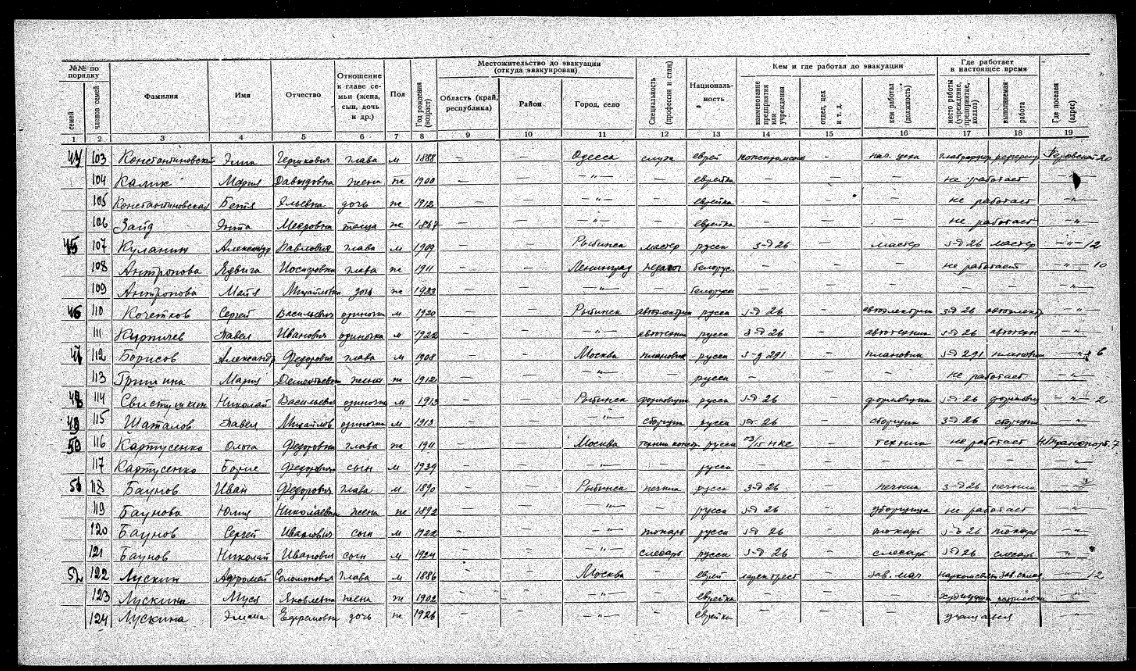 №№ по порядку | Фамилия | Имя | Отчество | Отношение к главе семьи (жена, сын, дочь и др.) | Пол | Год рождения (возраст) | Местожительство до эвакуации (откуда эвакуирован) | Специальность (профессия и стаж) | Националь-ность. | Кем и где работал до эвакуации | Где работает в настоящее время | Где поселен (адрес)
семей | членов семей | Область (край, республика) | Район. | Город, село | наименование предприятия или учреждения | отдел, цех и т. д. | кем работал (должность) | место работы (учреждение, предприятие, колхоз) | выполняемая работа
1 2 3 4 5 6 7 8 9 10 11 12 13 14 15 16 17 18 19
44 103 Константиновский глава м 1888 – – Одесса еврей – нач. цеха 20
104 Калик Мария Давыдовна жена ж 1900 – – –"– – еврейка – – – не работает –"–
105 Константиновская Бетя дочь ж 1912 – – –"– – еврейка – – – не работает –"–
106 Зайд теща ж 1867 – – –"– – еврейка – – – не работает –"–
45 107 Куланин Александр Павлович глава м 1909 – – Рыбинск мастер русск з-д 26 – мастер з-д 26 мастер –"– 12
108 Антропова Ядвига Иосифовна глава ж 1911 – – Ленинград педагог белорус. – – – не работает –"– 10
109 Антропова Майя Михайловна дочь ж 1933 – – –"– – белоруска – – – – –
46 110 Кочетков Сергей Васильевич одиночка м 1920 – – Рыбинск русск з-д 26 – з-д 26 –"–
111 Кирпичев Павел Иванович одиночка м 1922 – – –"– русск з-д 26 – з-д 26 –"–
47 112 Борисов Александр Федорович глава м 1908 – – Москва плановик русск з-д 291 – плановик з-д 291 плановик –"– 6
113 Гришина Мария Дементьевна жена ж 1912 – – –"– – русск – – – не работает –"–
48 114 Николай Васильевич одиночка м 1913 – – Рыбинск формовщик русск з-д 26 – формовщик з-д 26 формовщ –"– 2
49 115 Шаталов Павел Михайлов одиночка м 1913 – – –"– сборщик русск з-д 26 – сборщик з-д 26 сборщик –"–
50 116 Картусенко Ольга Федоровна глава ж 1911 – – Москва русск НКС – техник не работает 7
117 Картусенко Борис Федорович сын м 1939 – – –"– – русск – – – – – –"–
51 118 Баунов Иван Федорович глава м 1890 – – Рыбинск печник русск з-д 26 – печник з-д 26 печник –"–
119 Баунова Юлия Николаевна жена ж 1892 – – –"– – русск з-д 26 – уборщица не работает –"–
120 Баунов Сергей Иванович сын м 1922 – – –"– токарь русск з-д 26 – токарь з-д 26 токарь –"–
121 Баунов Николай Иванович сын м 1924 – – –"– слесарь русск з-д 26 – слесарь з-д 26 слесарь –"–
52 122 Лускин Соломонович глава м 1886 – – Москва – еврей – зав. маг –"– 12
123 Лускина Муся Яковлевна жена ж 1902 – – –"– – еврейка – – – –"–
124 Лускина Ефраимовна дочь ж 1926 – – –"– – еврейка – – – учащаяся –"–